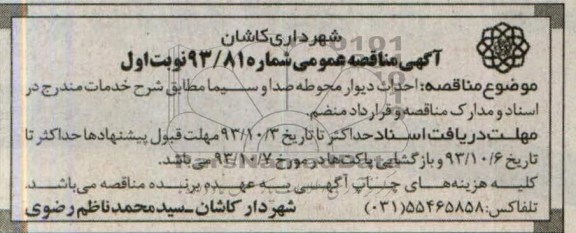 شهرداری کاشان
آگهی مناقصه عمومی شماره ۹۳/۸۱ نوبت اول
موضوع مناقصه: احداث دیوار محوطه صدا و سیما مطابق شرح خدمات مندرج در
اسناد و مدارک مناقصه و قرارداد منضم.
مهلت دریافت اسناد حداکثر تا تاریخ ۹۳/۱۰/۳ مهلت قبول پیشنهادها حداکثر تا
تاریخ ۹۳/۱۰/۶ و بازگشایی پاکت‌ها در مورخ ۹۳/۱۰/۷ می‌باشد.
کلیه هزینه‌های چاپ آگهی به عهده برنده مناقصه می‌باشد.
تلفاکس: ۵۵۴۶۵۸۵۸(۰۳۱) شهردار کاشان ـ سیدمحمد ناظم رضوی